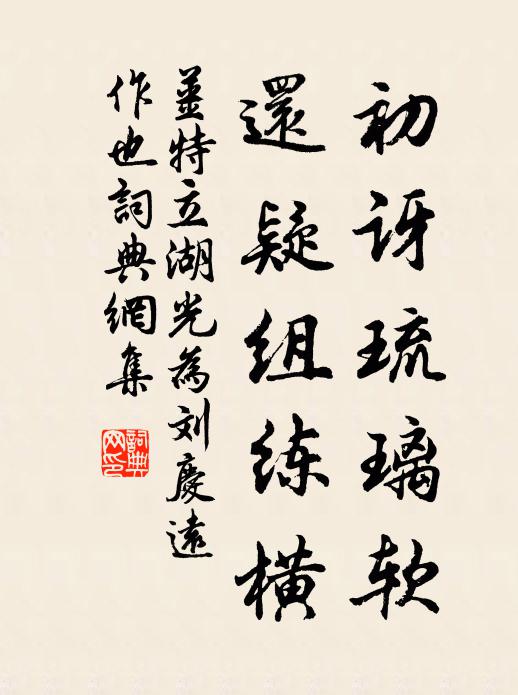 初讶琉璃软
還疑组练横
姜特立湖光為刘慶遠
作也詞典網集
詞典网印